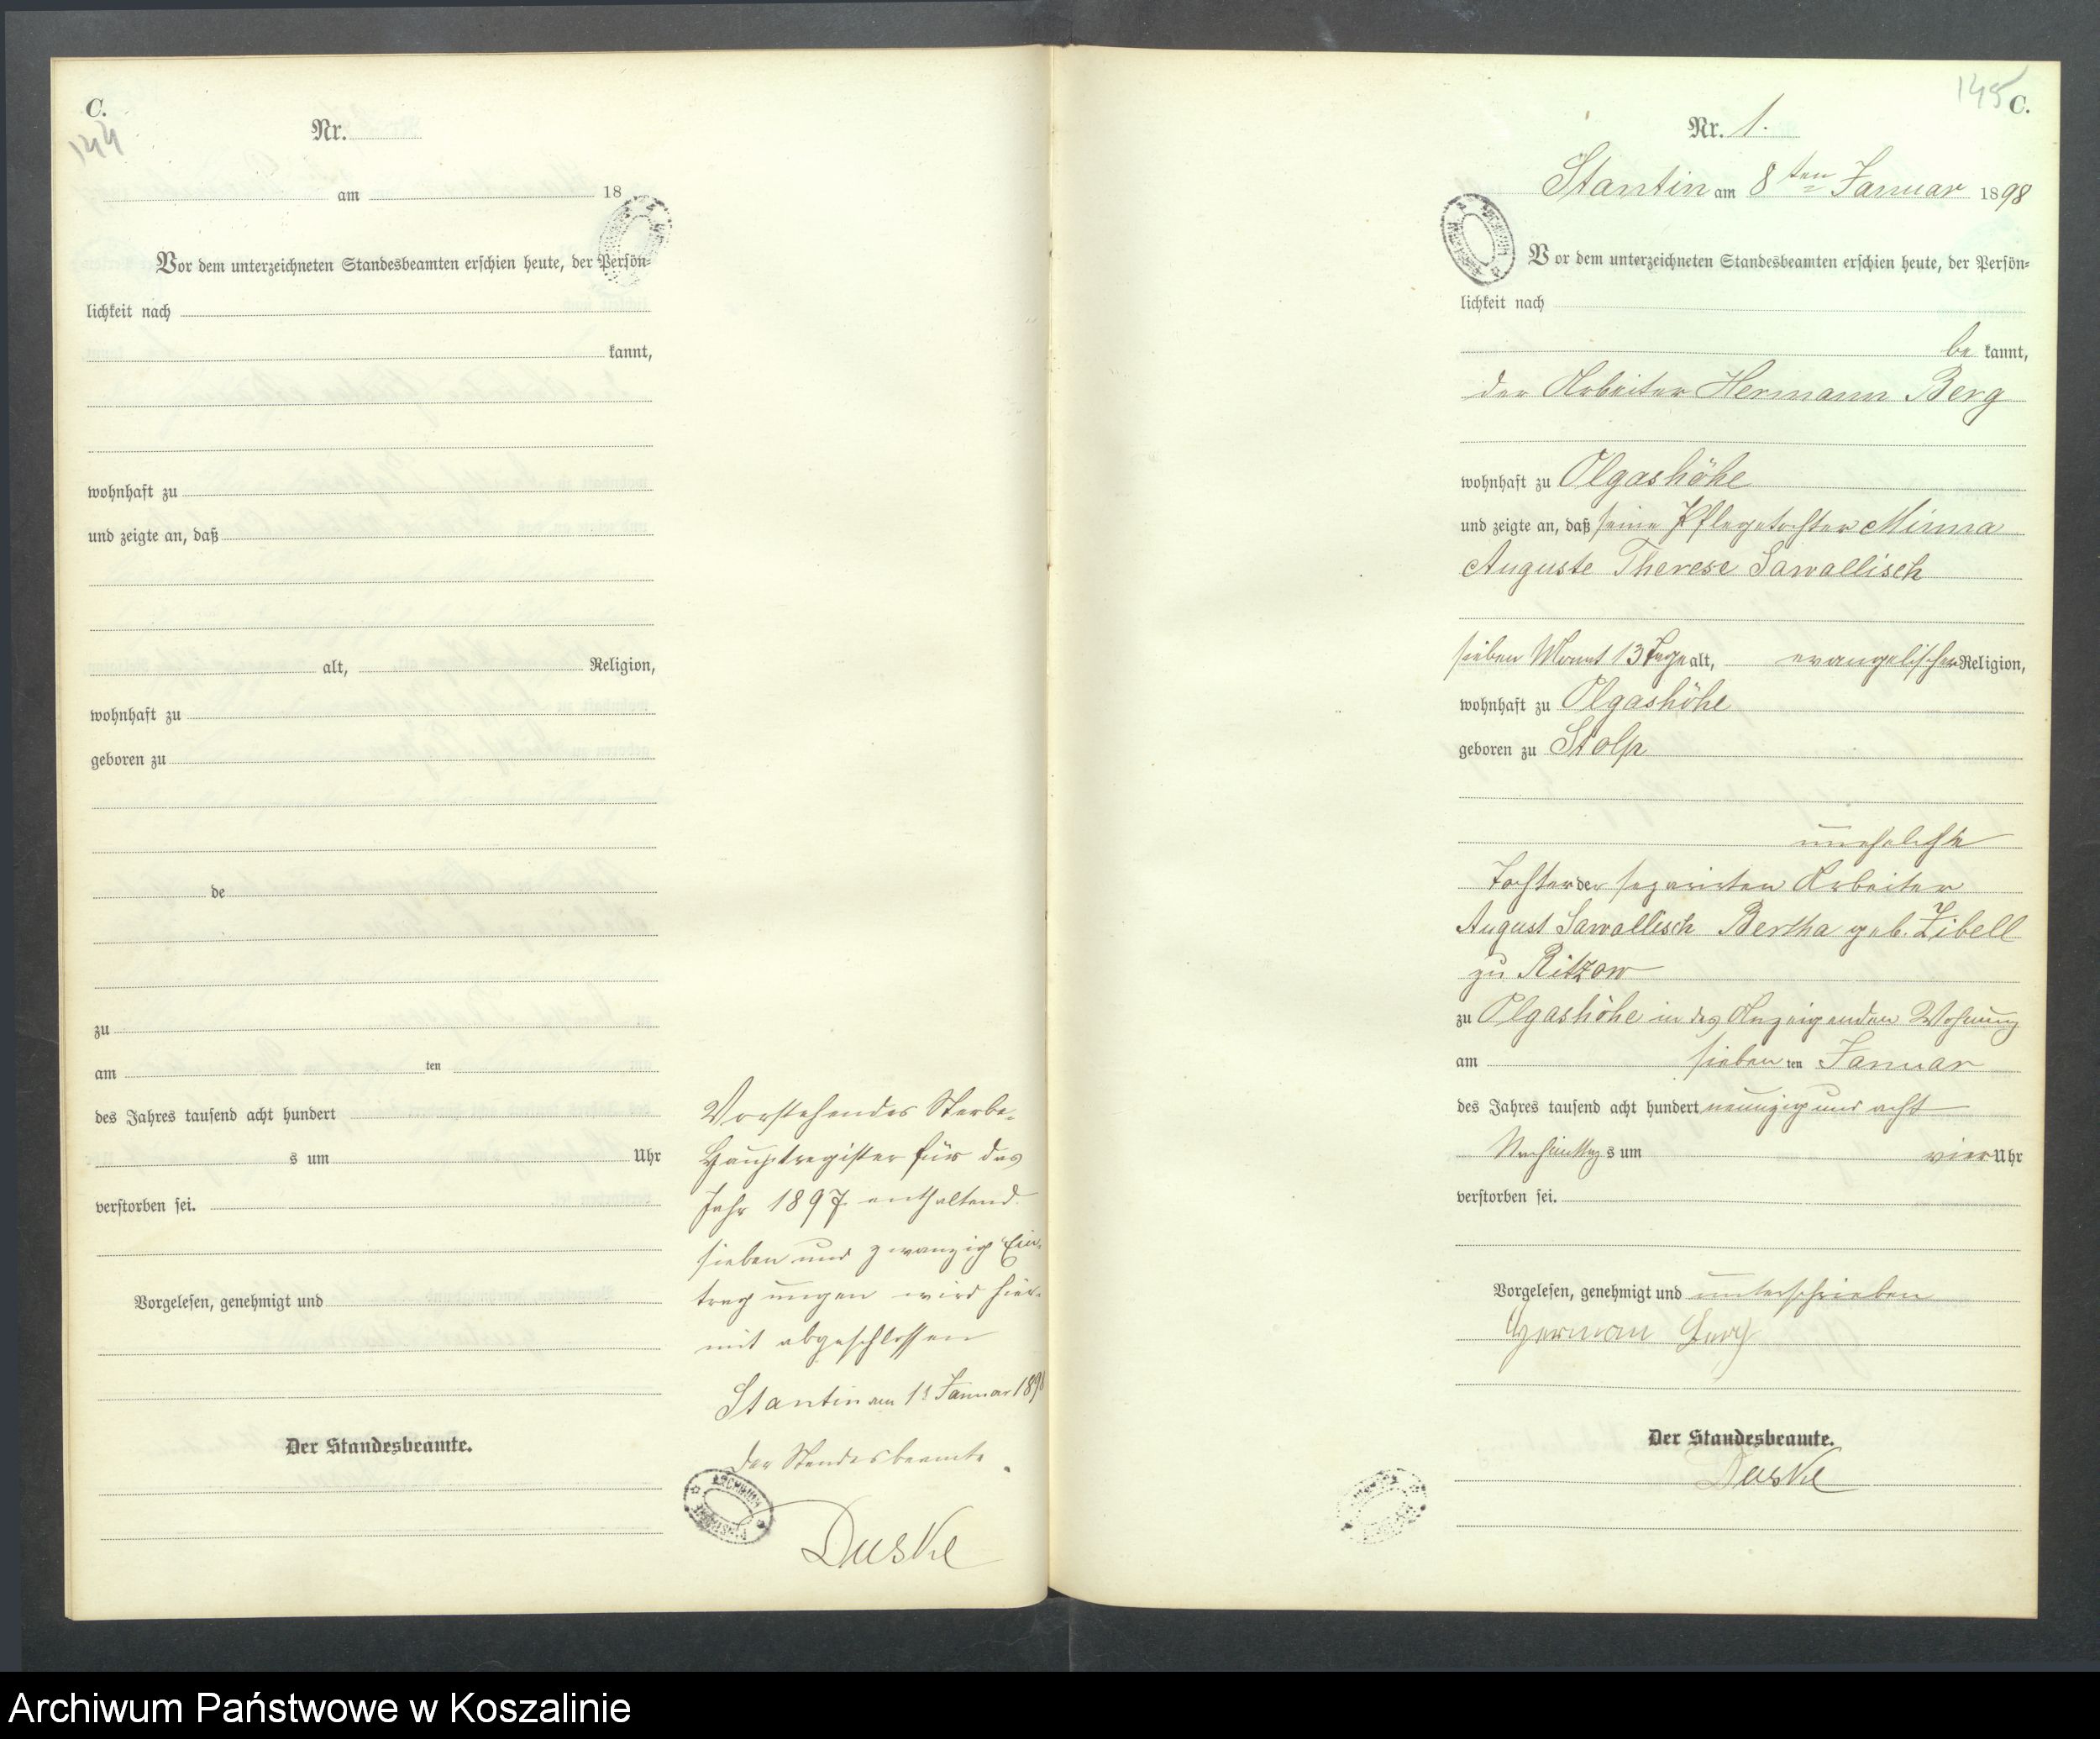 C.
144
Nr.
am 18
Vor dem unterzeichneten Standesbeamten erschien heute, der Persön-
lichkeit nach
kannt,
wohnhaft zu
und zeigte an, daß
alt, Religion,
wohnhaft zu
geboren zu
de
zu
am ten
des Jahres tausend acht hundert
s um Uhr
verstorben sei.
Vorgelesen, genehmigt und
Der Standesbeamte.
Vorstehendes Sterbe-
Hauptregister für das
Jahr 1897 enthaltend
sieben und zwanzig Ein-
tragungen wird hier-
mit abgeschlossen
Stantin am Januar 1898
Der Standesbeamte.
Duske
145 C.
Nr. 1.
Stantin am 8ten Januar 1898
Vor dem unterzeichneten Standesbeamten erschien heute, der Persön-
lichkeit nach
be kannt,
der Arbeiter Hermann Berg
wohnhaft zu Olgashöhe
und zeigte an, daß seine Pflegetochter Minna
Auguste Therese Sawallisch
sieben Monat 13 Tage alt, evangelischer Religion,
wohnhaft zu Olgashöhe
geboren zu Stolp
uneheliche
Tochter der separirten Arbeiter
August Sawallisch Bertha geb. Zibell
zu Ritzow
zu Olgashöhe in des Anzeigenden Wohnung
am sieben ten Januar
des Jahres tausend acht hundert neunzig und acht
Nachmittag s um vier Uhr
verstorben sei.
Vorgelesen, genehmigt und unterschrieben
Herman Berg
Der Standesbeamte.
Duske
Archiwum Państwowe w Koszalinie